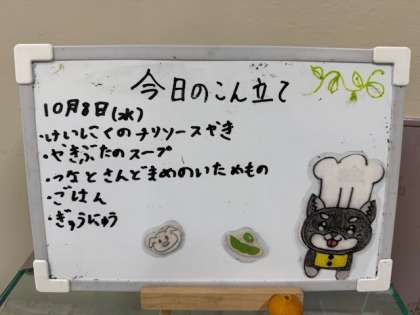 今日のこん立て
10月8日(水)
・けいにくのチリソースやき
・やきぶたのスープ
・つなとさんどまめのいためもの
・ごはん
・ぎゅうにゅう